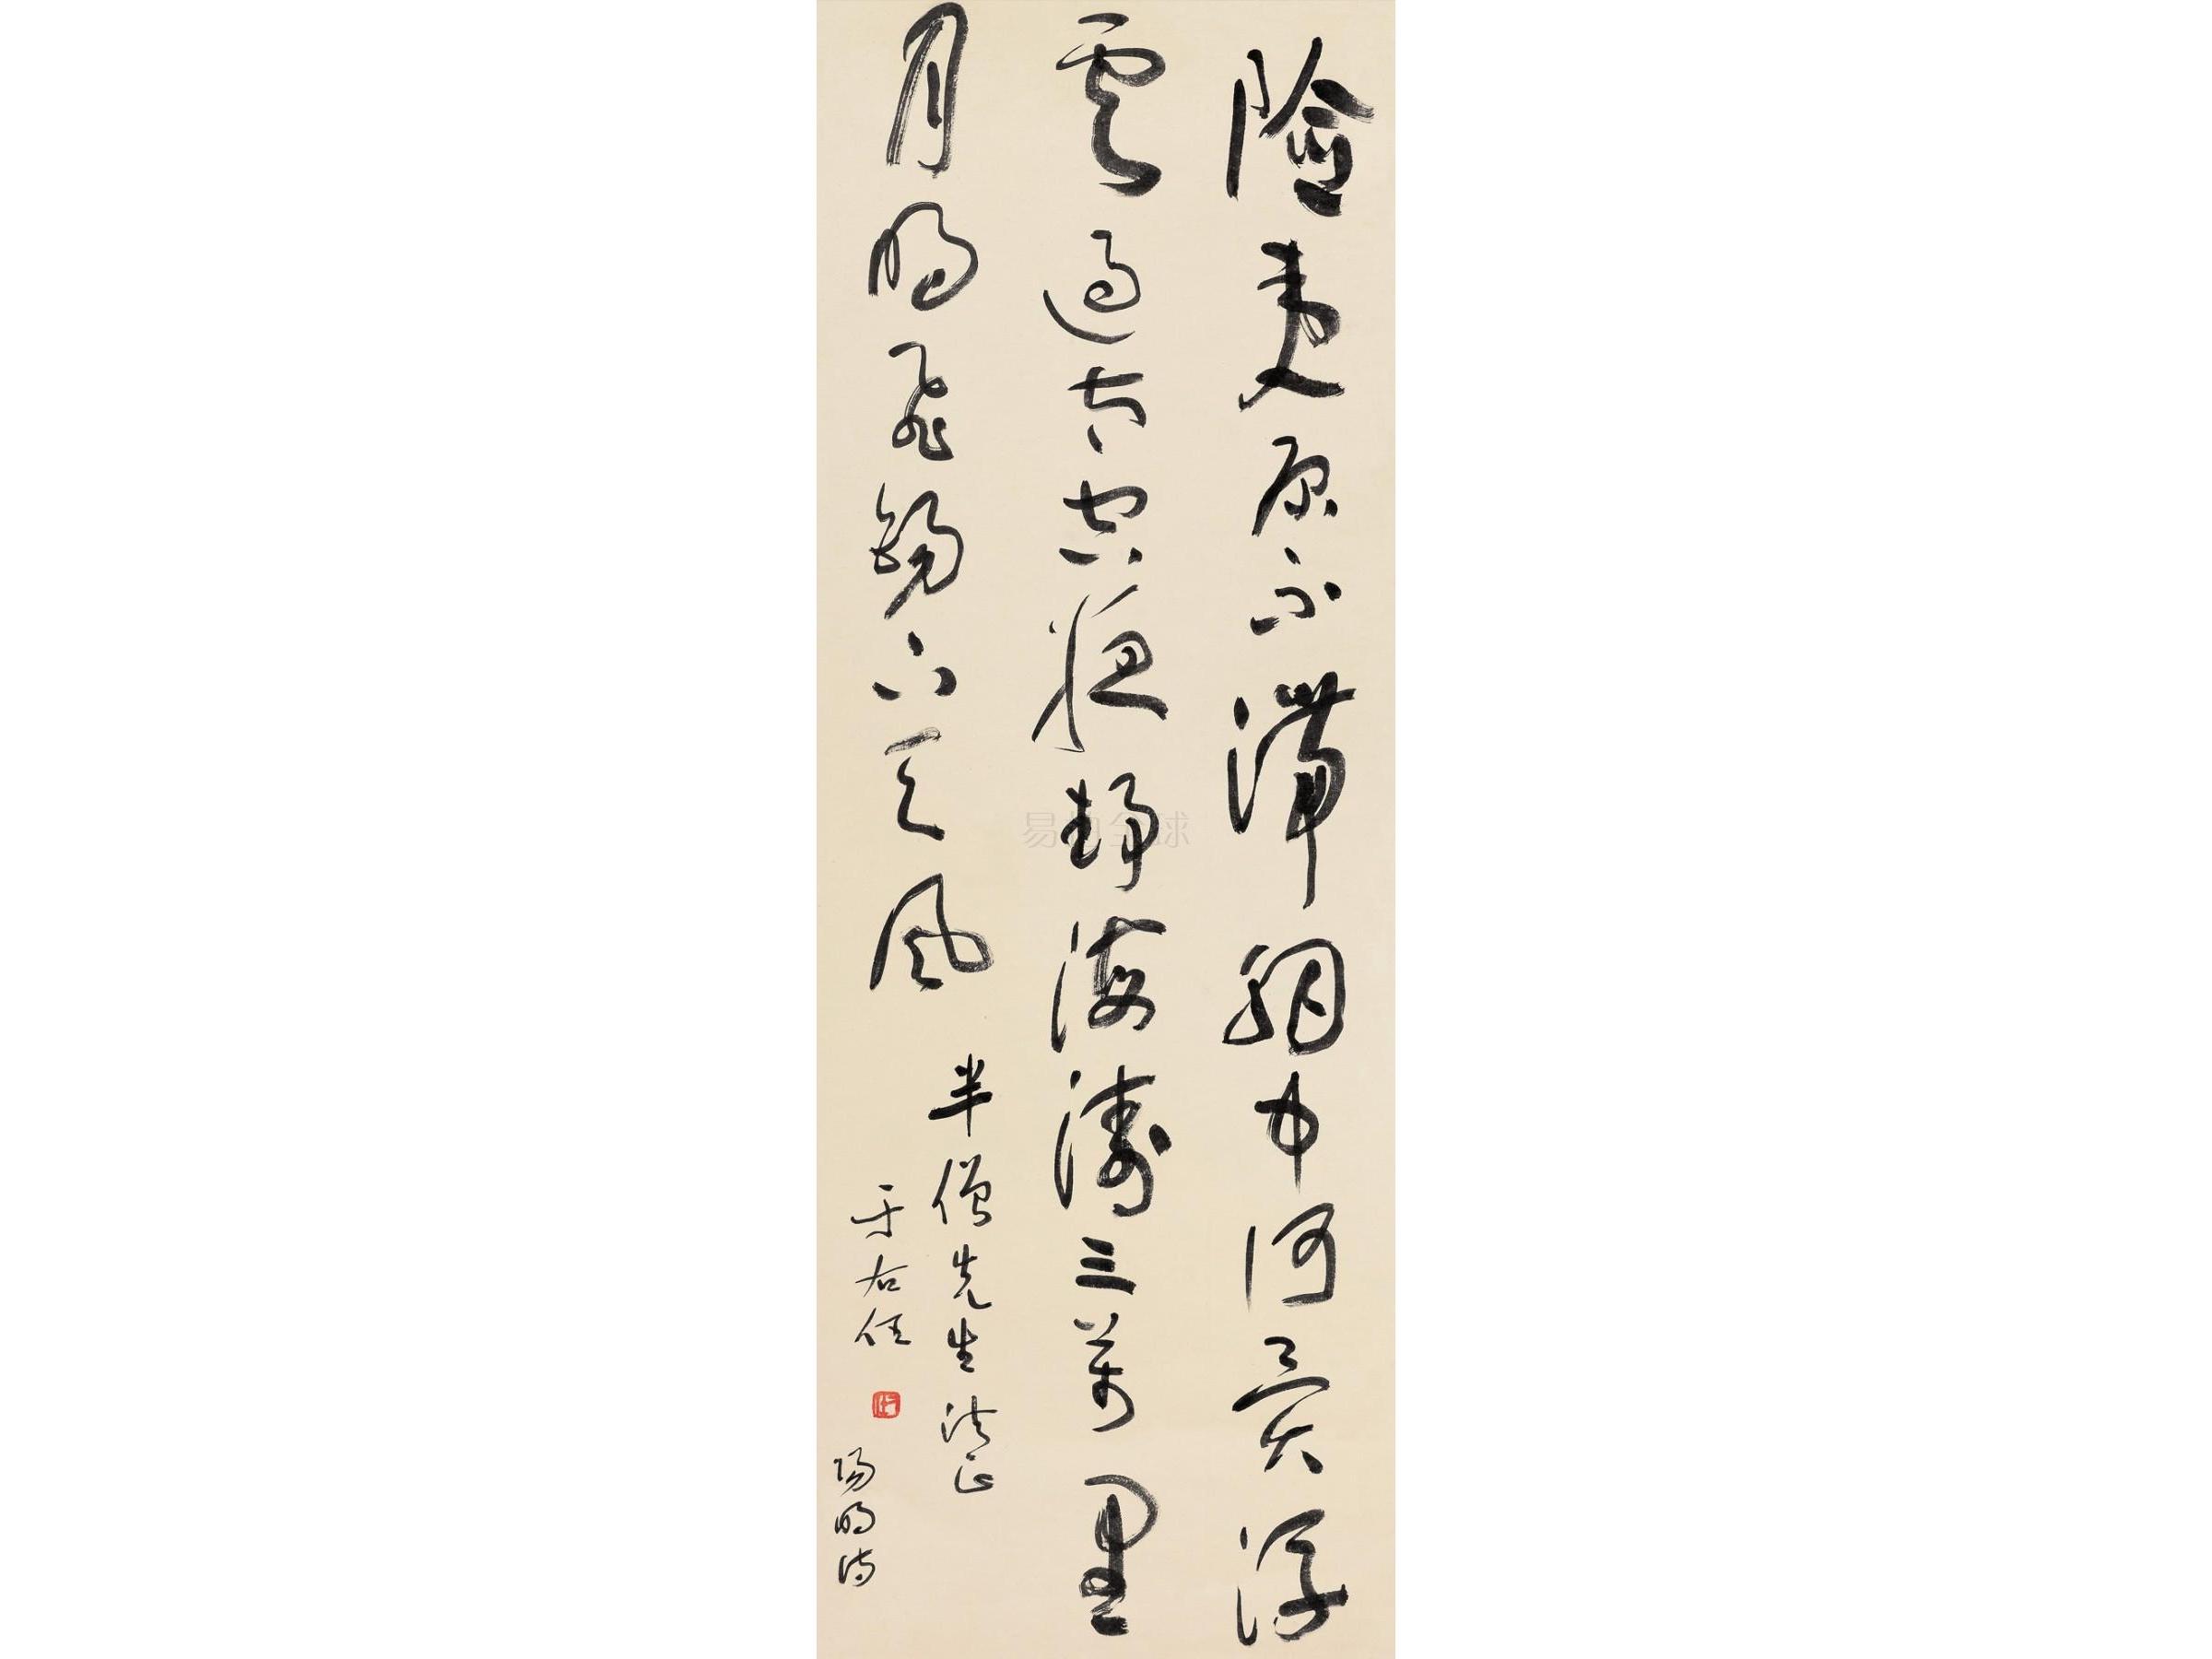 險夷原不滯胸中何異浮
雲過太空夜靜海濤三萬里
月明飛錫下天風
半僧先生法正
于右任
陽明詩
易拍全球